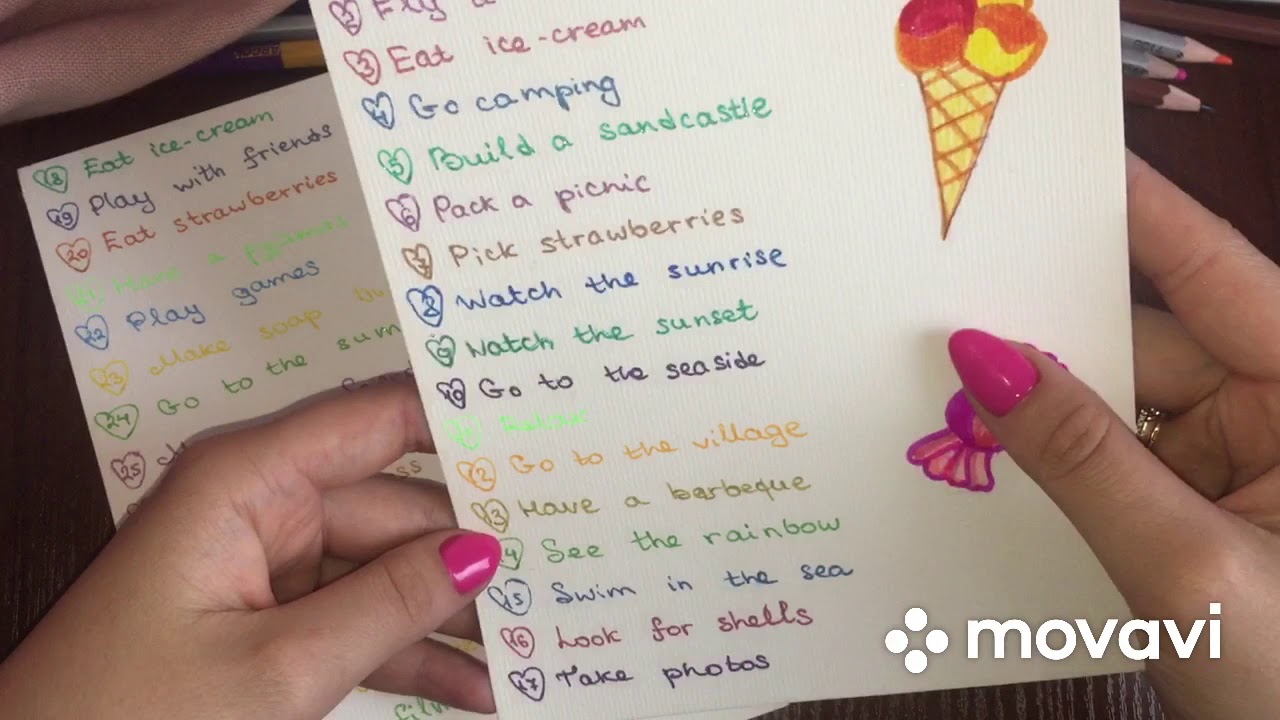 2 Fly a
3 Eat ice-cream
4 Go camping
5 Build a sandcastle
6 Pack a picnic
7 Pick strawberries
8 Watch the sunrise
9 Watch the sunset
10 Go to the seaside
11 Relax
12 Go to the village
13 Have a barbeque
14 See the rainbow
15 Swim in the sea
16 Look for shells
17 Take photos
18 Eat ice-cream
19 Play with friends
20 Eat strawberries
21 Have a
22 Play games
23 Make soap
24 Go to the
25
movavi